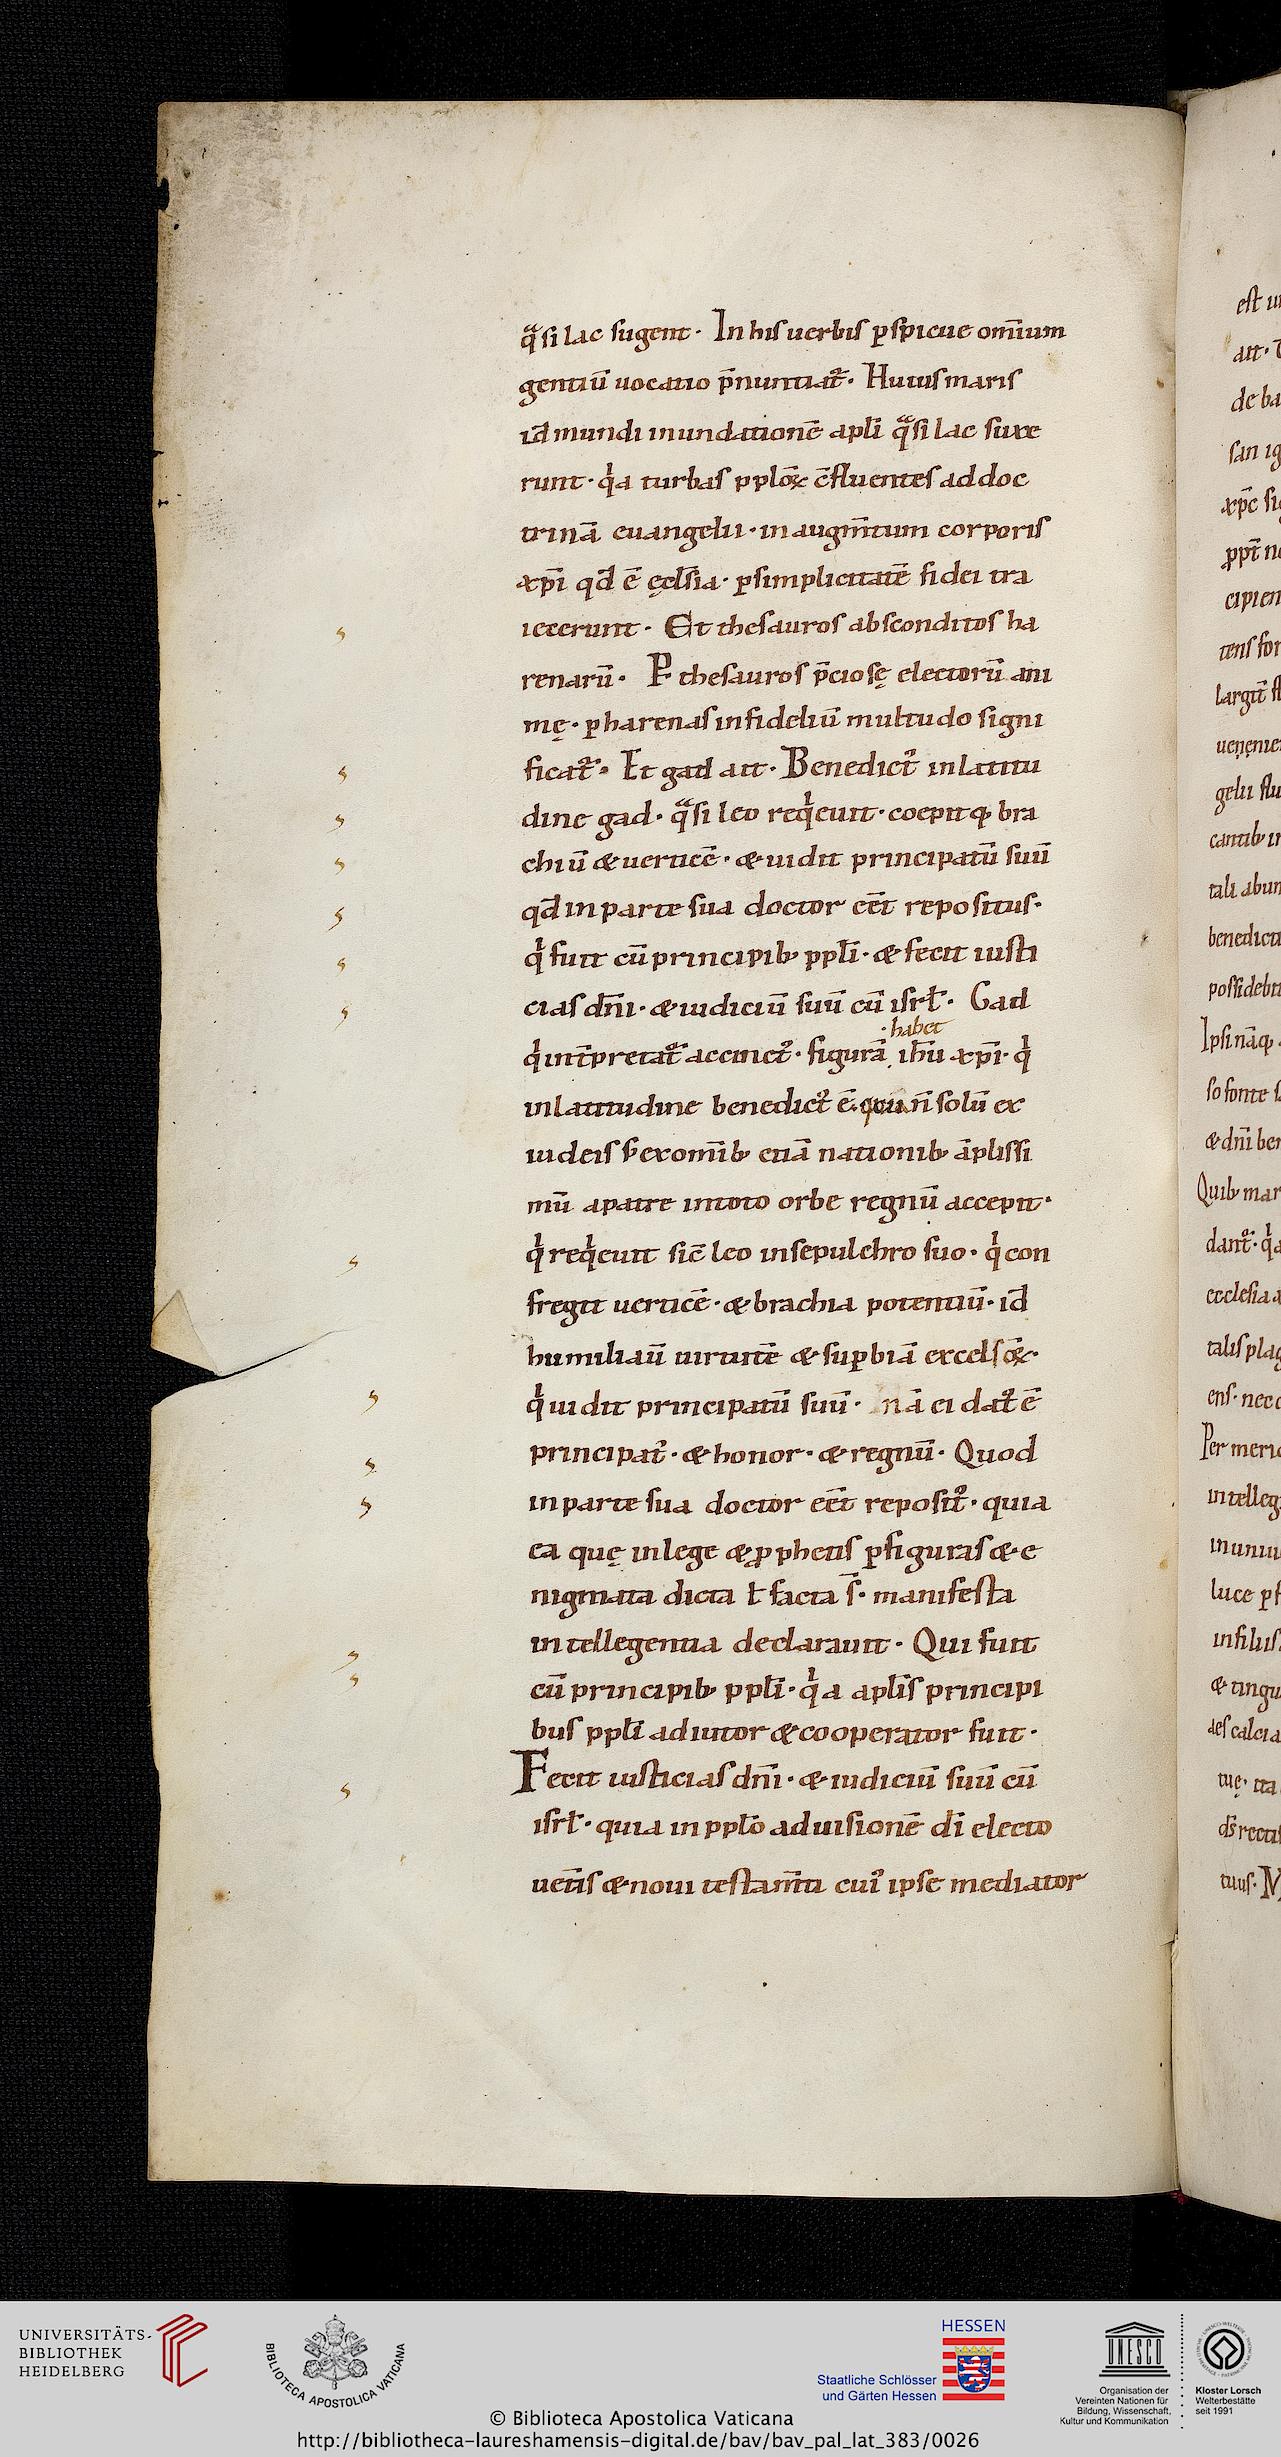 qͣsi lac sugent· In his uerbis ꝑspicue omīum
gentiū uocatio p̄nuntiat᷑· Huius maris
id̄ mundi inundationē apłi qͣsi lac suxe
runt· qͥa turbas pplōꝝ c̄fluentes ad doc
trinā euangelii· in augm̄tum corporis
xp̄i qd̄ ē ęcłsia· ꝑ simplicitatē fidei tra
iecerunt· Et thesauros absconditos ha
renarū· P̲ thesauros p̄ciosę electorū ani
mę· ꝑ harenas infideliū multitudo signi
ficat᷑· Et gad ait· Benedict᷒ in latitu
dine gad· qͣsi leo reqͥeuit· coepitq; bra
chiū & uerticē· & uidit principatū suū
qd̄ in parte sua doctor eēt repositus·
qͥ fuit cū principib; ppłi· & fecit iusti
cias dn̄i· & iudiciū suū cū isrł· Gad
·habet
qͥ int̄pretat᷑ accinct᷒· figurā ih̄u xp̄i· qͥ
in latitudine benedict᷒ ē· n̄ solū ex
iudeis s; ex om̄ib; etiā nationib; āplissi
mū a patre in toto orbe regnū accepit·
qͥ reqͥeuit sic̄ leo in sepulchro suo· qͥ con
fregit uerticē· & brachia potentiū· id̄
humiliaū uirtutē & suꝑbiā excelsōꝝ·
qͥ uidit principatū suū· nā ei dat᷒ ē
principat᷒· & honor· & regnū· Quod
in parte sua doctor eēt reposit᷒· quia
ea quę in lege & ꝓphetis ꝑ figuras & e
nigmata dicta ł facta s̄· manifesta
intellegentia declarauit· Qui fuit
cū principib; ppłi· qͥa apłis principi
bus ppłi adiutor & cooperator fuit·
Fecit iusticias dn̄i· & iudiciū suū cū
isrł· quia in ppło ad uisionē dī electo
uet̄is & noui testam̄ti cui᷒ ipse mediator
est
ait·
de ba
san ig
xp̄c si
ꝓpt̄ n
cipien
tens for
largit̄ fl
gelii flu
cantib; i
tali abun
benedict
possidebi
Ipsi nāq;
so fonte
& dn̄i be
Quib; mar
dant᷑· qͥa
ecclesia
talis pla
ens· nec
Per meri
intelleg
inunu
luce ꝑ
in filiis
& tingu
aes calcia
tuę· ita
ds̄ rectis
tuus· M
UNIVERSITÄTS-
BIBLIOTHEK
HEIDELBERG
BIBLIOTECA APOSTOLICA VATICANA
HESSEN
Staatliche Schlösser
und Gärten Hessen
UNESCO
Organisation der
Vereinten Nationen für
Bildung, Wissenschaft,
Kultur und Kommunikation
Kloster Lorsch
Welterbestätte
seit 1991
© Biblioteca Apostolica Vaticana
http://bibliotheca-laureshamensis-digital.de/bav/bav_pal_lat_383/0026